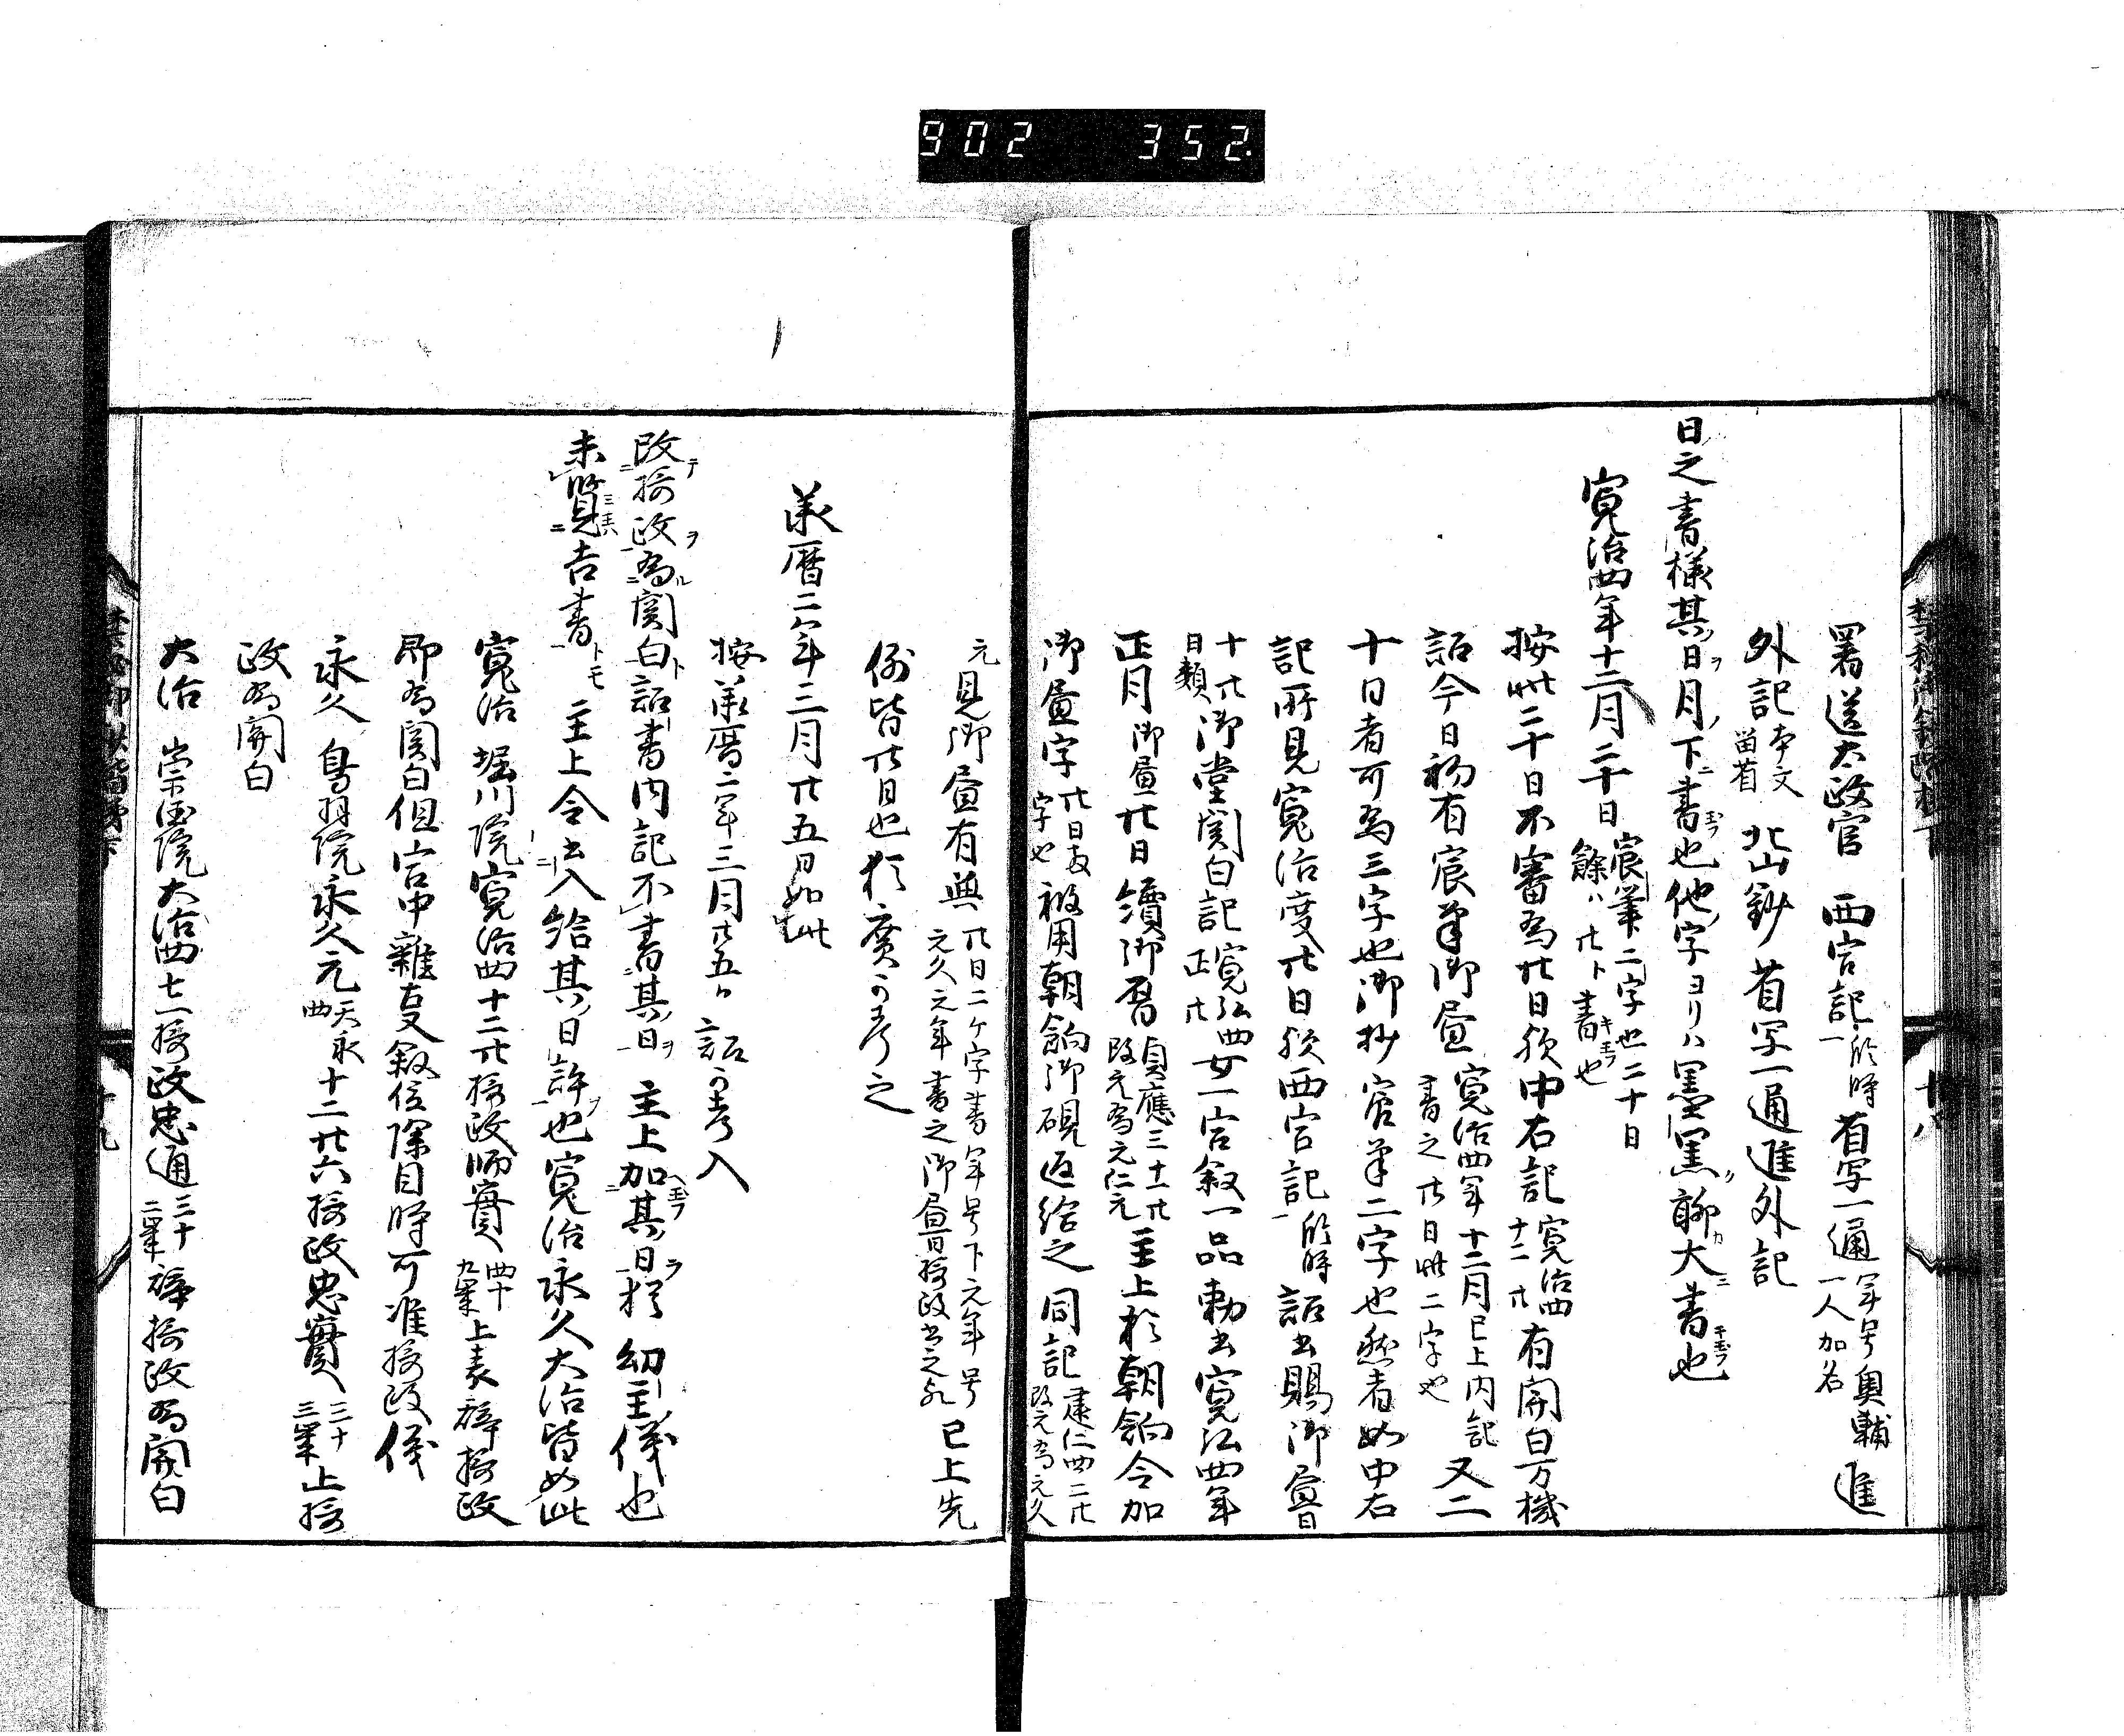 902 352.
署送太政官 西宮記一 所時 省写一通 年号奥輔一人加名 進
外記 本文 省写一通進外記
日之書様其日ヲ月ノ下ニ書玉フ也他ノ字ヨリハ墨黒ク聊カ大ニ書キ玉フ也
寛治四年十二月二十日 宸筆二字也二十日餘ハ廿ト書キ玉フ也
按此二十日不審為廿日欤中右記 寛治四十二廿 有関白万機
詔今日初有宸筆御畫 寛治四年十二月已上内記書之廿日此二字也 又二
十日者可為三字也御抄宸筆二字也然者如中右
記所見寛治度廿日欤西宮記一 所時 詔書賜御畫日
十廿日類 御堂関白記 寛弘四正廿 女一宮叙一品勅書寛弘四年
正月 御畫廿日 續御暦 貞應三十一廿改元為元仁元 主上於朝餉令加
御畫字 廿日故字也 被用朝餉御硯返給之 同記 建仁四二廿改元為元久
元見御畫有與 廿日二ケ字書年号下元年号元久元年書之御畫日摂政書之 已上先
例皆廿日也猶廣可考之
承暦二年三月廿五日如此
按承暦二年三月廿五日 詔可考入
改テ摂政ヲ為ル関白ト詔書内記不書其日ヲ 主上加其ノ日ヲ猶幼主ノ儀也
未覧吉書トモ 主上令書入給其ノ日許ヲ也寛治永久大治皆如此
寛治 堀川院寛治四十二廿摂政師實 四十九歳 上表辞摂政
即為関白但官中雜事叙位除目時可准摂政儀
永久 鳥羽院永久元 天永四 十二廿六摂政忠實 三十三歳 止摂
政為関白
大治 崇徳院大治四七一摂政忠通 三十二歳 辞摂政為関白